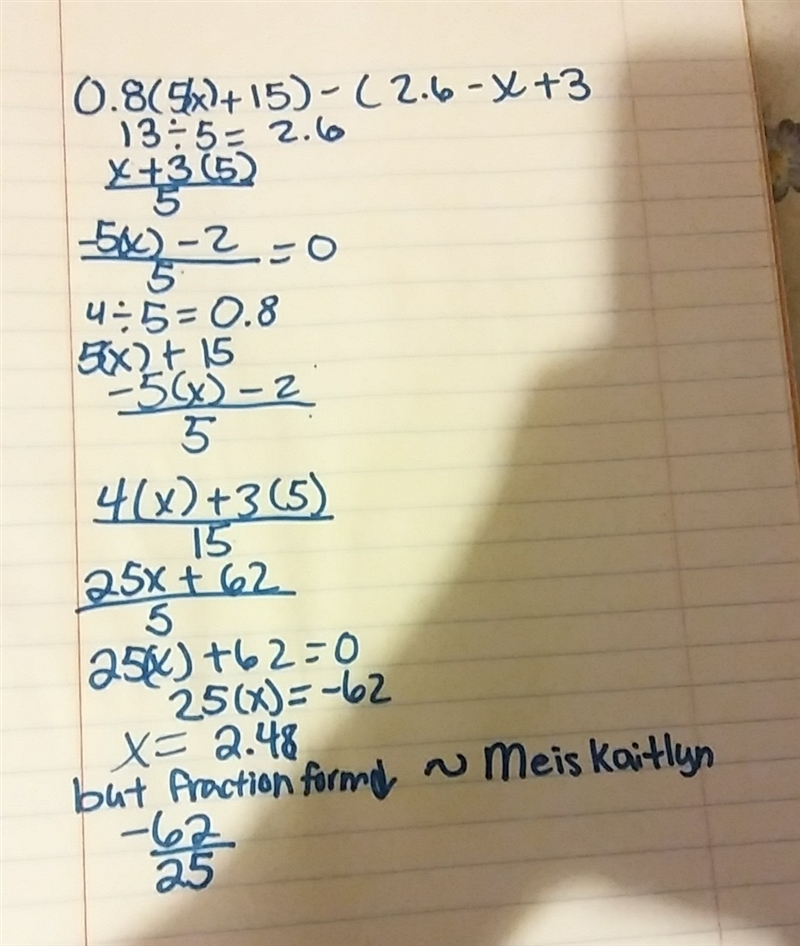 0.8(5(x)+15)-(2.6-x+3
13÷5= 2.6
x+3(5)
5
-5(x)-2
5
=0
4÷5=0.8
5(x)+15
-5(x)-2
5
4(x)+3(5)
15
25x+62
5
25(x)+62=0
25(x)=-62
x= 2.48
but fraction form ~ Meis Kaitlyn
-62
25